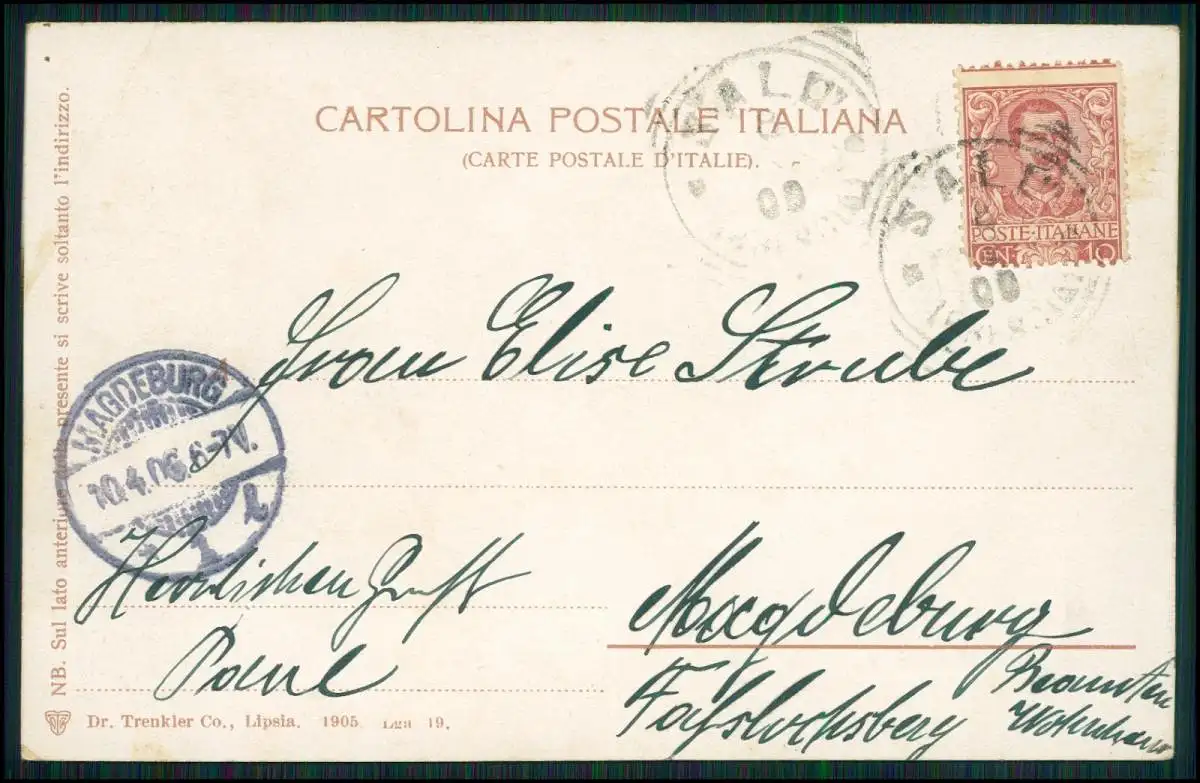 CARTOLINA POSTALE ITALIANA
(CARTE POSTALE D'ITALIE).
SALÒ
06
SALÒ
06
POSTE·ITALIANE
CEN. 10
Frau Elise Strube
MAGDEBURG
10.4.06.6-7V.
1
Herzlichen Gruß
Paul
Magdeburg
Beamten
NB. Sul lato anteriore della presente si scrive soltanto l'indirizzo.
Dr. Trenkler Co., Lipsia. 1905. Lga 19.